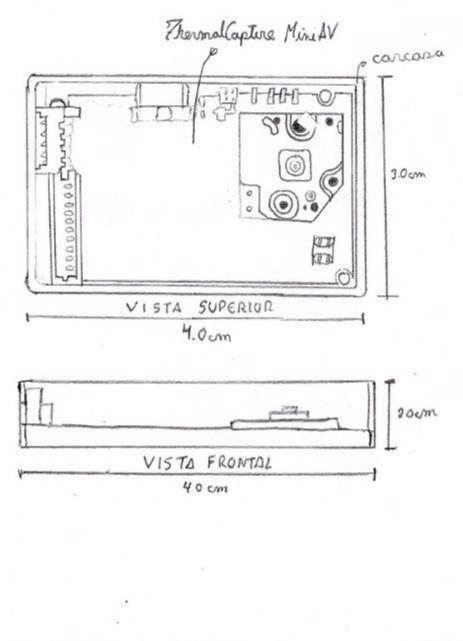 ThermalCapture MiniAV
carcasa
3.0cm
VISTA SUPERIOR
4.0cm
2.0cm
VISTA FRONTAL
4.0cm